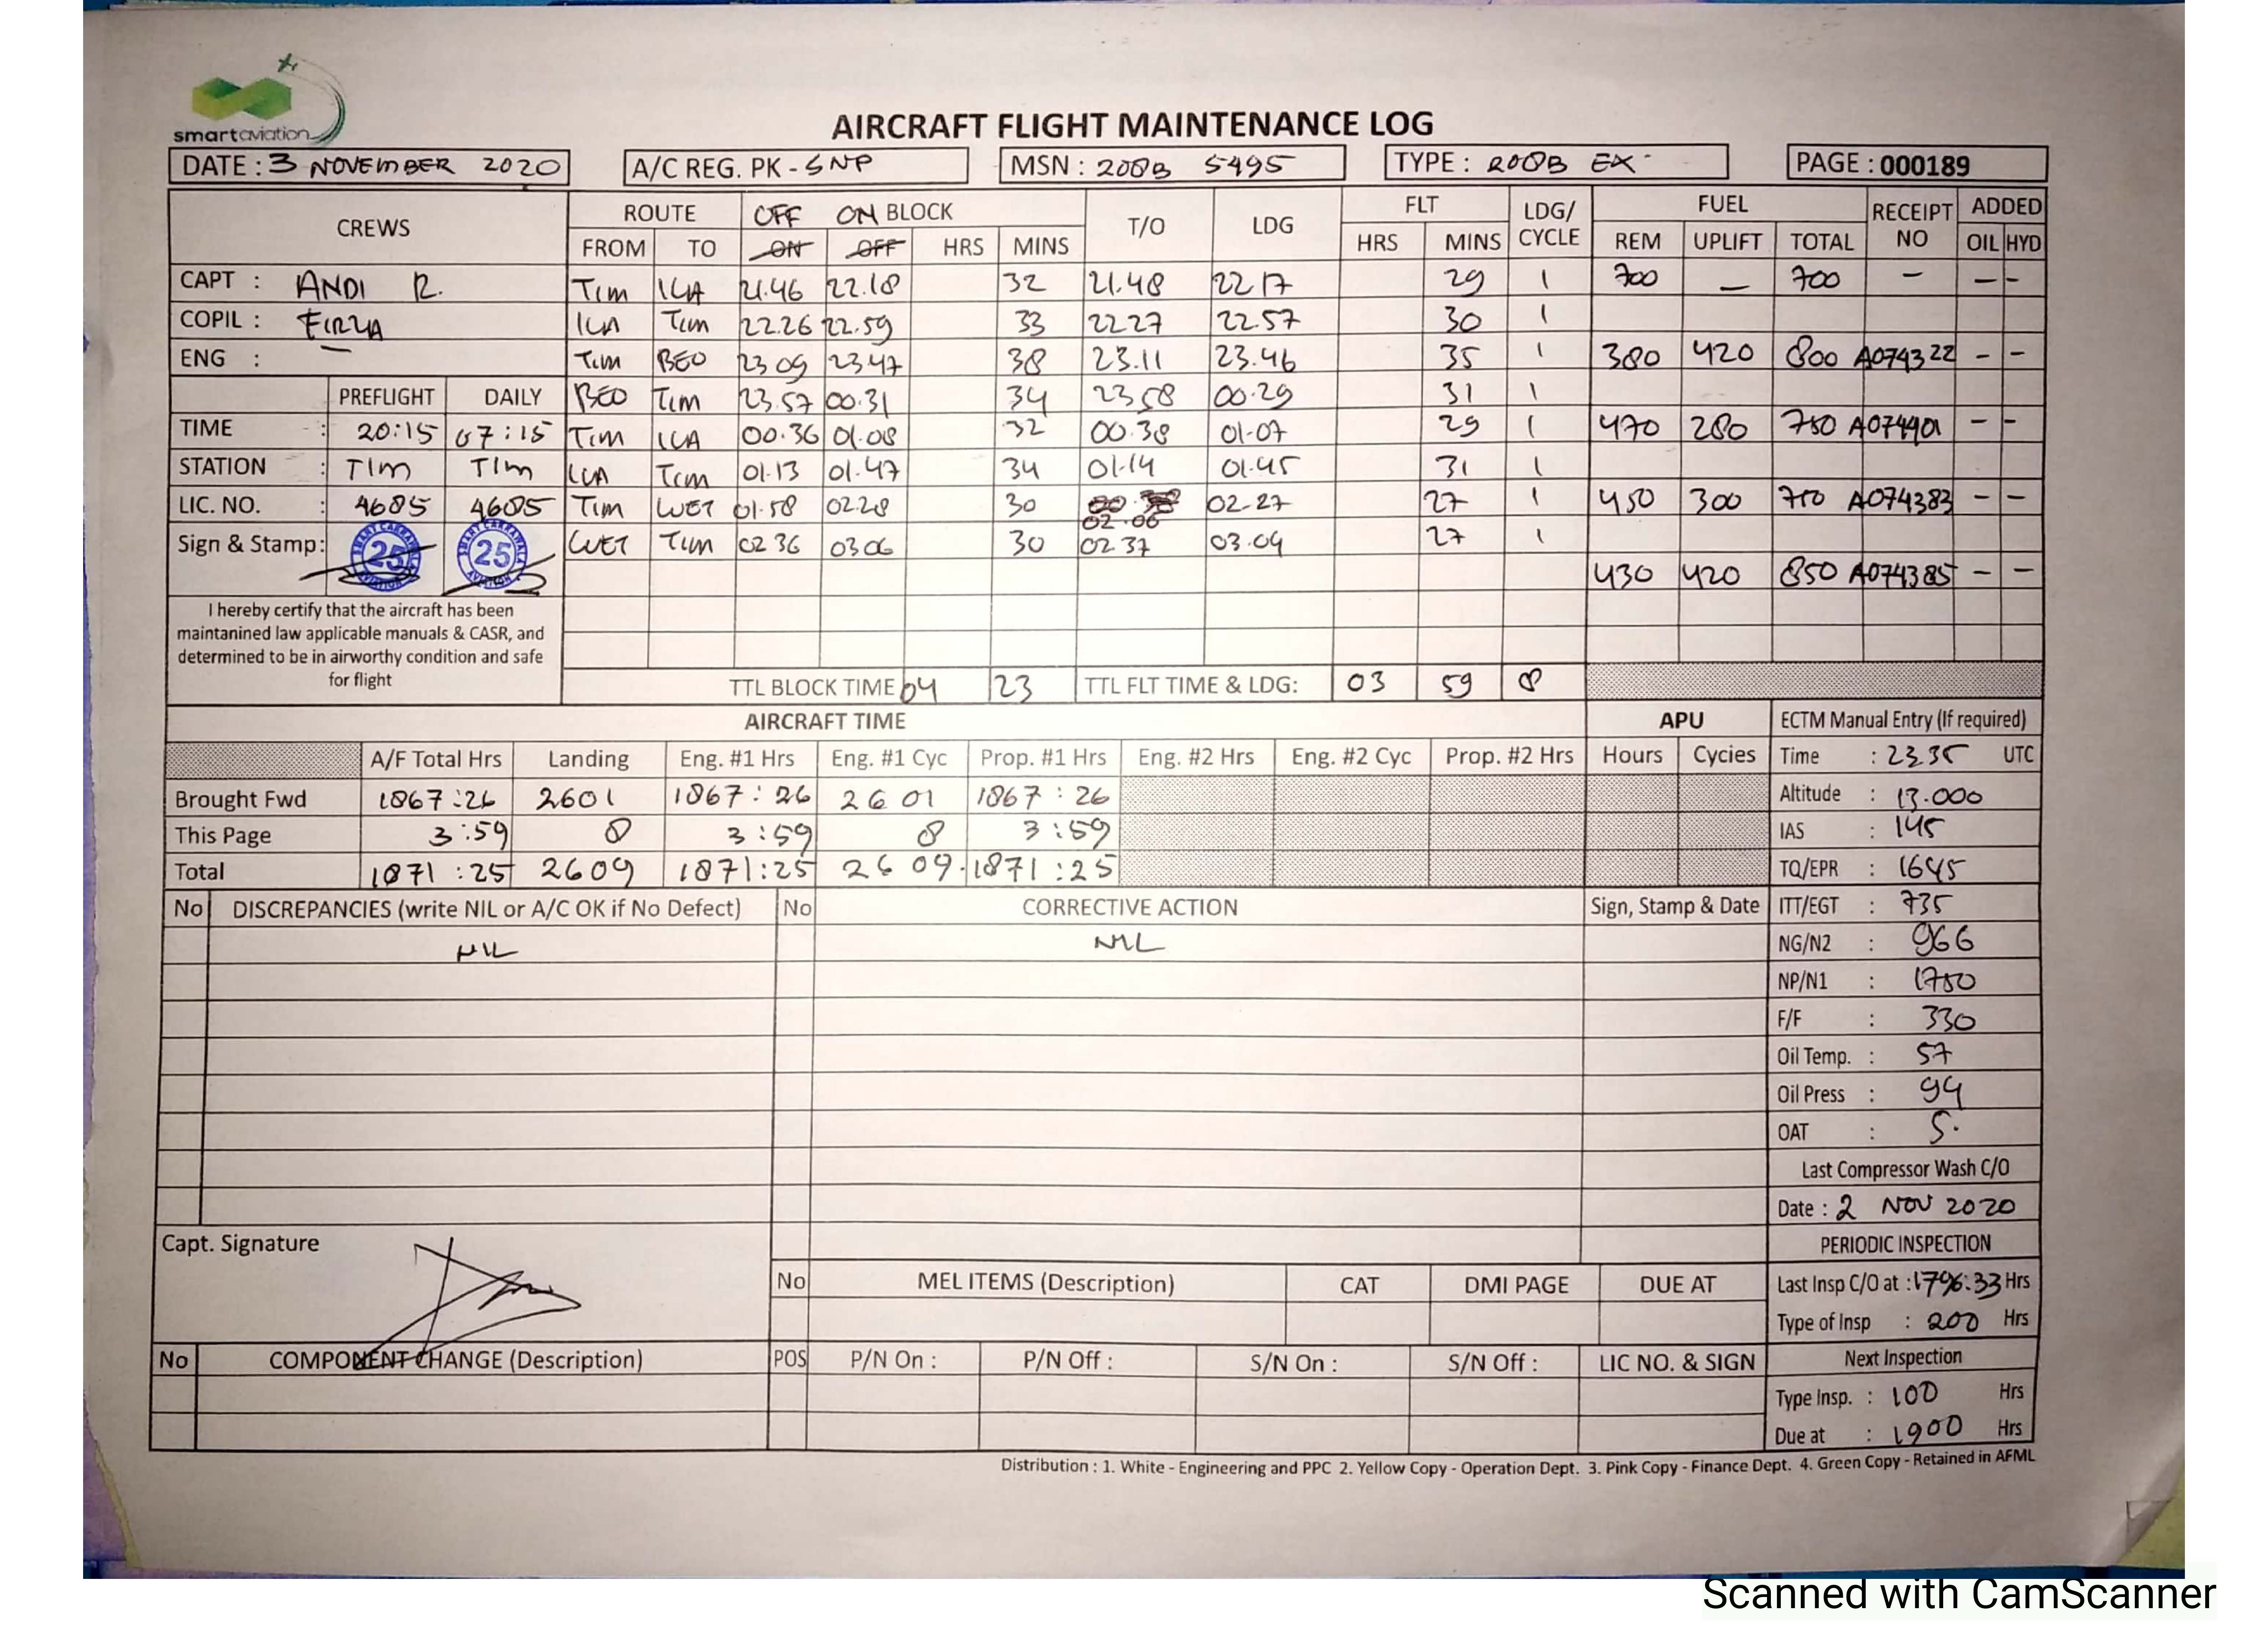 smartaviation
AIRCRAFT FLIGHT MAINTENANCE LOG
DATE : 3 NOVEMBER 2020 A/C REG. PK - SNP MSN : 208B 5495 TYPE : 208B EX PAGE : 000189
CREWS ROUTE OFF ON BLOCK T/O LDG FLT LDG/ CYCLE FUEL RECEIPT NO ADDED
FROM TO ON OFF HRS MINS HRS MINS REM UPLIFT TOTAL OIL HYD
CAPT : ANDI R. TIM ILA 21.46 22.18 32 21.48 22 17 29 1 700 – 700 – – –
COPIL : FIRZA ILA TIM 22.26 22.59 33 22 27 22.57 30 1
ENG : – TIM BEO 23 09 23 47 38 23.11 23.46 35 1 380 420 800 A074322 – –
PREFLIGHT DAILY BEO TIM 23.57 00.31 34 23 58 00.29 31 1
TIME : 20:15 07:15 TIM ILA 00.36 01.08 32 00.38 01-07 29 1 470 280 750 A074401 – –
STATION : TIM TIM ILA TIM 01.13 01.47 34 01.14 01.45 31 1
LIC. NO. : 4685 4685 TIM WET 01.58 02.28 30 02.00 02-27 27 1 450 300 750 A074383 – –
Sign & Stamp: 25 25 WET TIM 02 36 03 06 30 02.37 03.04 27 1
430 420 850 A074385 – –
I hereby certify that the aircraft has been
maintanined law applicable manuals & CASR, and
determined to be in airworthy condition and safe
for flight
TTL BLOCK TIME 04 23 TTL FLT TIME & LDG: 03 59 8
AIRCRAFT TIME APU ECTM Manual Entry (If required)
A/F Total Hrs Landing Eng. #1 Hrs Eng. #1 Cyc Prop. #1 Hrs Eng. #2 Hrs Eng. #2 Cyc Prop. #2 Hrs Hours Cycies Time : 23.35 UTC
Brought Fwd 1867:26 2601 1867:26 2601 1867:26 Altitude : 13.000
This Page 3:59 8 3:59 8 3:59 IAS : 145
Total 1871:25 2609 1871:25 2609. 1871:25 TQ/EPR : 1645
No DISCREPANCIES (write NIL or A/C OK if No Defect) No CORRECTIVE ACTION Sign, Stamp & Date ITT/EGT : 735
NIL NIL NG/N2 : 966
NP/N1 : 1750
F/F : 330
Oil Temp. : 57
Oil Press : 94
OAT : 5.
Last Compressor Wash C/O
Date : 2 NOV 2020
Capt. Signature PERIODIC INSPECTION
No MEL ITEMS (Description) CAT DMI PAGE DUE AT Last Insp C/O at : 1796:33 Hrs
Type of Insp : 200 Hrs
No COMPONENT CHANGE (Description) POS P/N On : P/N Off : S/N On : S/N Off : LIC NO. & SIGN Next Inspection
Type Insp. : 100 Hrs
Due at : 1900 Hrs
Distribution : 1. White - Engineering and PPC 2. Yellow Copy - Operation Dept. 3. Pink Copy - Finance Dept. 4. Green Copy - Retained in AFML
Scanned with CamScanner